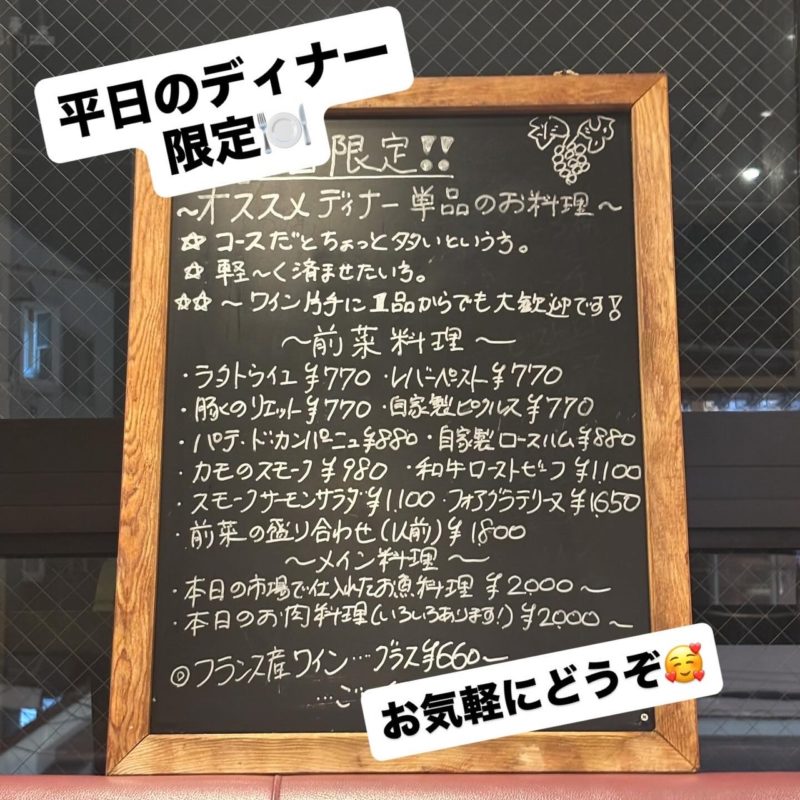 平日のディナー
限定🍽️
限定!!
～オススメディナー単品のお料理～
☆コースだとちょっと多いという方。
☆軽～く済ませたい方。
☆☆～ワイン片手に1品からでも大歓迎です!
～前菜料理～
・ラタトゥイユ ¥770 ・レバーペースト ¥770
・豚肉のリエット ¥770 ・自家製ピクルス ¥770
・パテ・ド・カンパーニュ ¥880 ・自家製ロースハム ¥880
・カモのスモーク ¥980 ・和牛ローストビーフ ¥1,100
・スモークサーモンサラダ ¥1,100 ・フォアグラテリーヌ ¥1,650
・前菜の盛り合わせ(1人前) ¥1,800
～メイン料理～
・本日の市場で仕入れたお魚料理 ¥2,000～
・本日のお肉料理(いろいろあります!) ¥2,000～
◎フランス産ワイン…グラス ¥660～
お気軽にどうぞ🥰